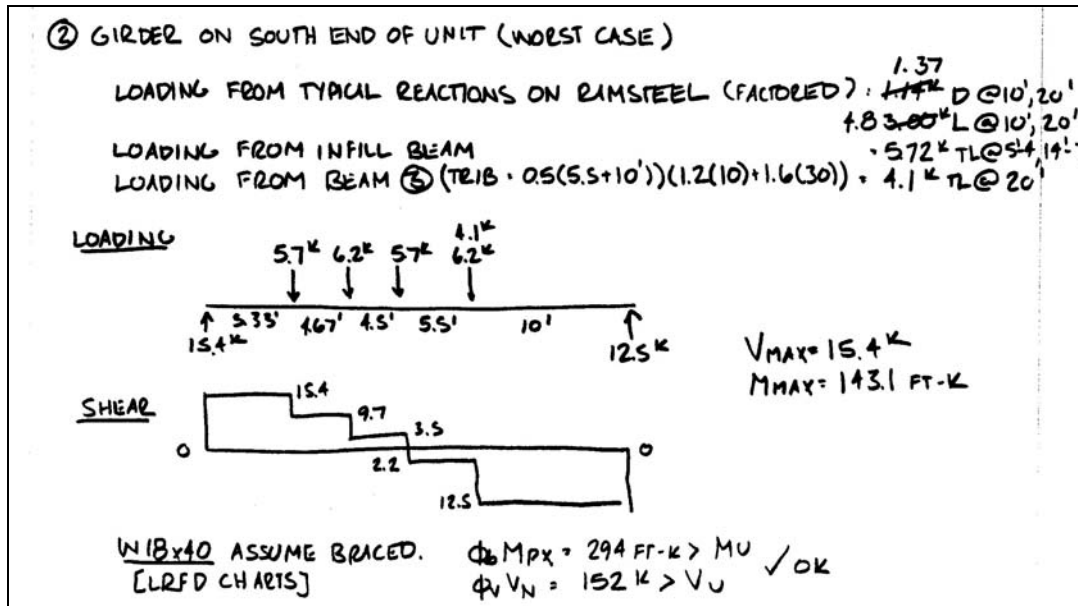 ② GIRDER ON SOUTH END OF UNIT (WORST CASE)
1.37
LOADING FROM TYPICAL REACTIONS ON RAMSTEEL (FACTORED): 1.14K D @10', 20'
4.8 3.00K L @ 10', 20'
LOADING FROM INFILL BEAM • 5.72K TL@5'4, 14'
LOADING FROM BEAM ③ (TRIB • 0.5(5.5+10'))(1.2(10)+1.6(30)) • 4.1K TL @ 20'
LOADING
4.1K
5.7K 6.2K 5.7K 6.2K
5.33' 4.67' 4.5' 5.5' 10'
15.4K 12.5K
VMAX= 15.4K
MMAX= 143.1 FT-K
SHEAR
15.4
9.7
3.5
0 0
2.2
12.5
W18x40 ASSUME BRACED. ϕb MPX = 294 FT-K > MU
[LRFD CHARTS] ϕv VN = 152K > VU ✓OK